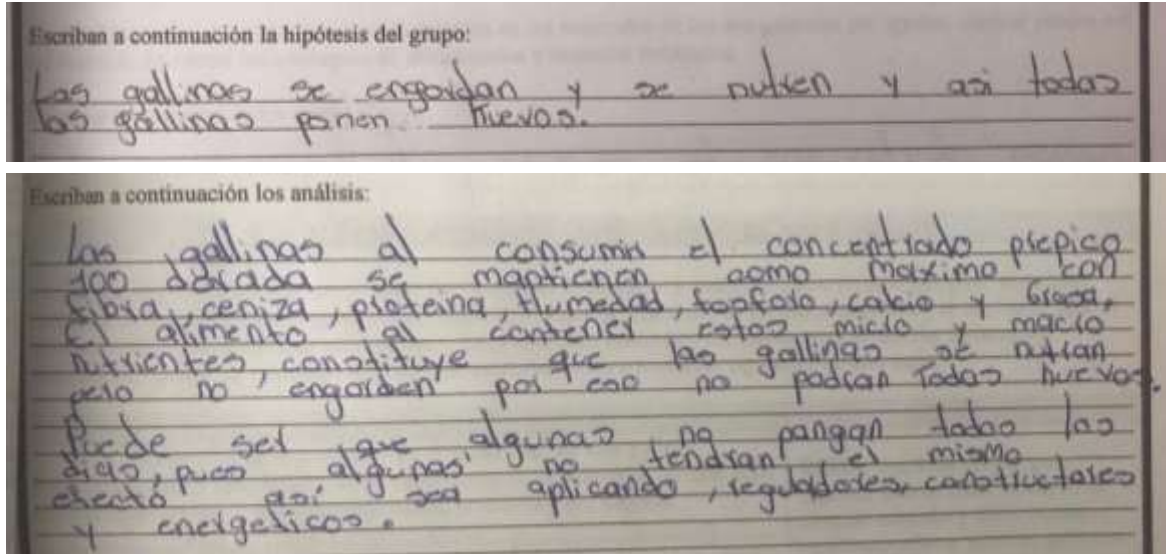 Escriban a continuación la hipótesis del grupo:
Las gallinas se engordan y se nutren y asi todas
las gallinas ponen huevos.
Escriban a continuación los análisis:
Las gallinas al consumir el concentrado prepico
100 dorada se mantienen como maximo con
fibra, ceniza, proteina, Humedad, fosforo, calcio y Grasa,
El alimento al contener estos micro y macro
nutrientes, constituye que las gallinas se nutran
pero no engorden por eso no podran Todas huevos.
Puede ser que algunas no pongan todos los
dias, pues algunas no tendran el mismo
efecto asi sea aplicando, reguladores, constructores
y energeticos.